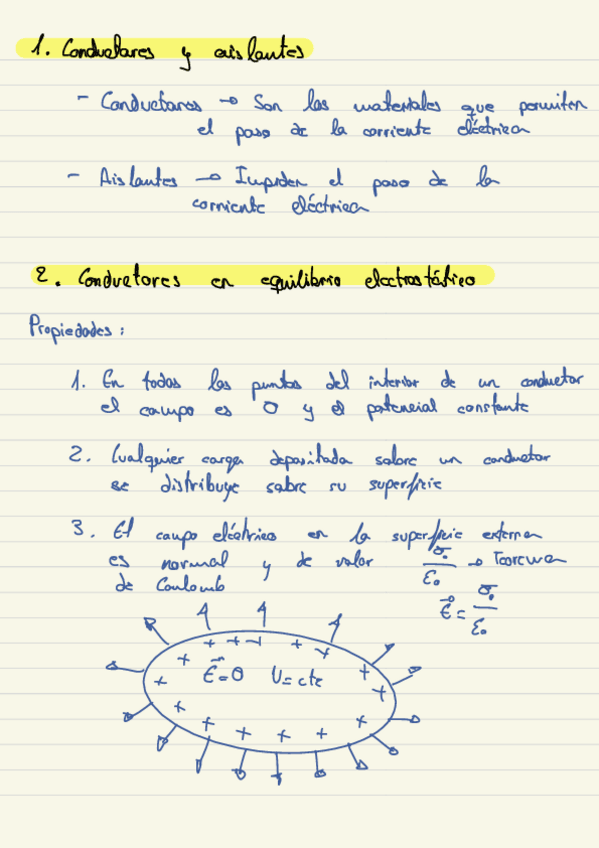 1. Conductores y aislantes
- Conductores → Son los materiales que permiten
el paso de la corriente eléctrica
- Aislantes → Impiden el paso de la
corriente eléctrica
2. Conductores en equilibrio electrostático
Propiedades:
1. En todos los puntos del interior de un conductor
el campo es 0 y el potencial constante
2. Cualquier carga depositada sobre un conductor
se distribuye sobre su superficie
3. El campo eléctrico en la superficie externa
es normal y de valor σ₀/ε₀ → Teorema
de Coulomb
E⃗ = σ₀/ε₀
+ + + - + +
+ E⃗=0 U=cte + +
+ + + + + + + +